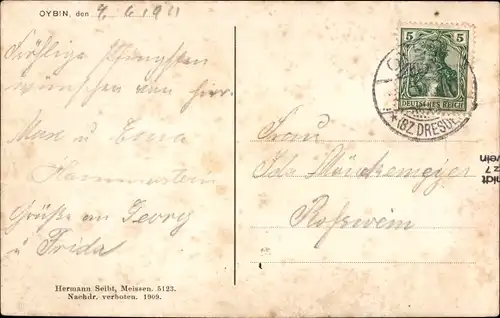 OYBIN, den 4.6.1911
Fröhliche Pfingsten
wünschen von hier
Max u Erna
Hammerstein
Grüße an Georg
u Frida
Hermann Seibt, Meissen. 5123.
Nachdr. verboten. 1909.
5 5
DEUTSCHES REICH
Frau
Ida
Roßwein